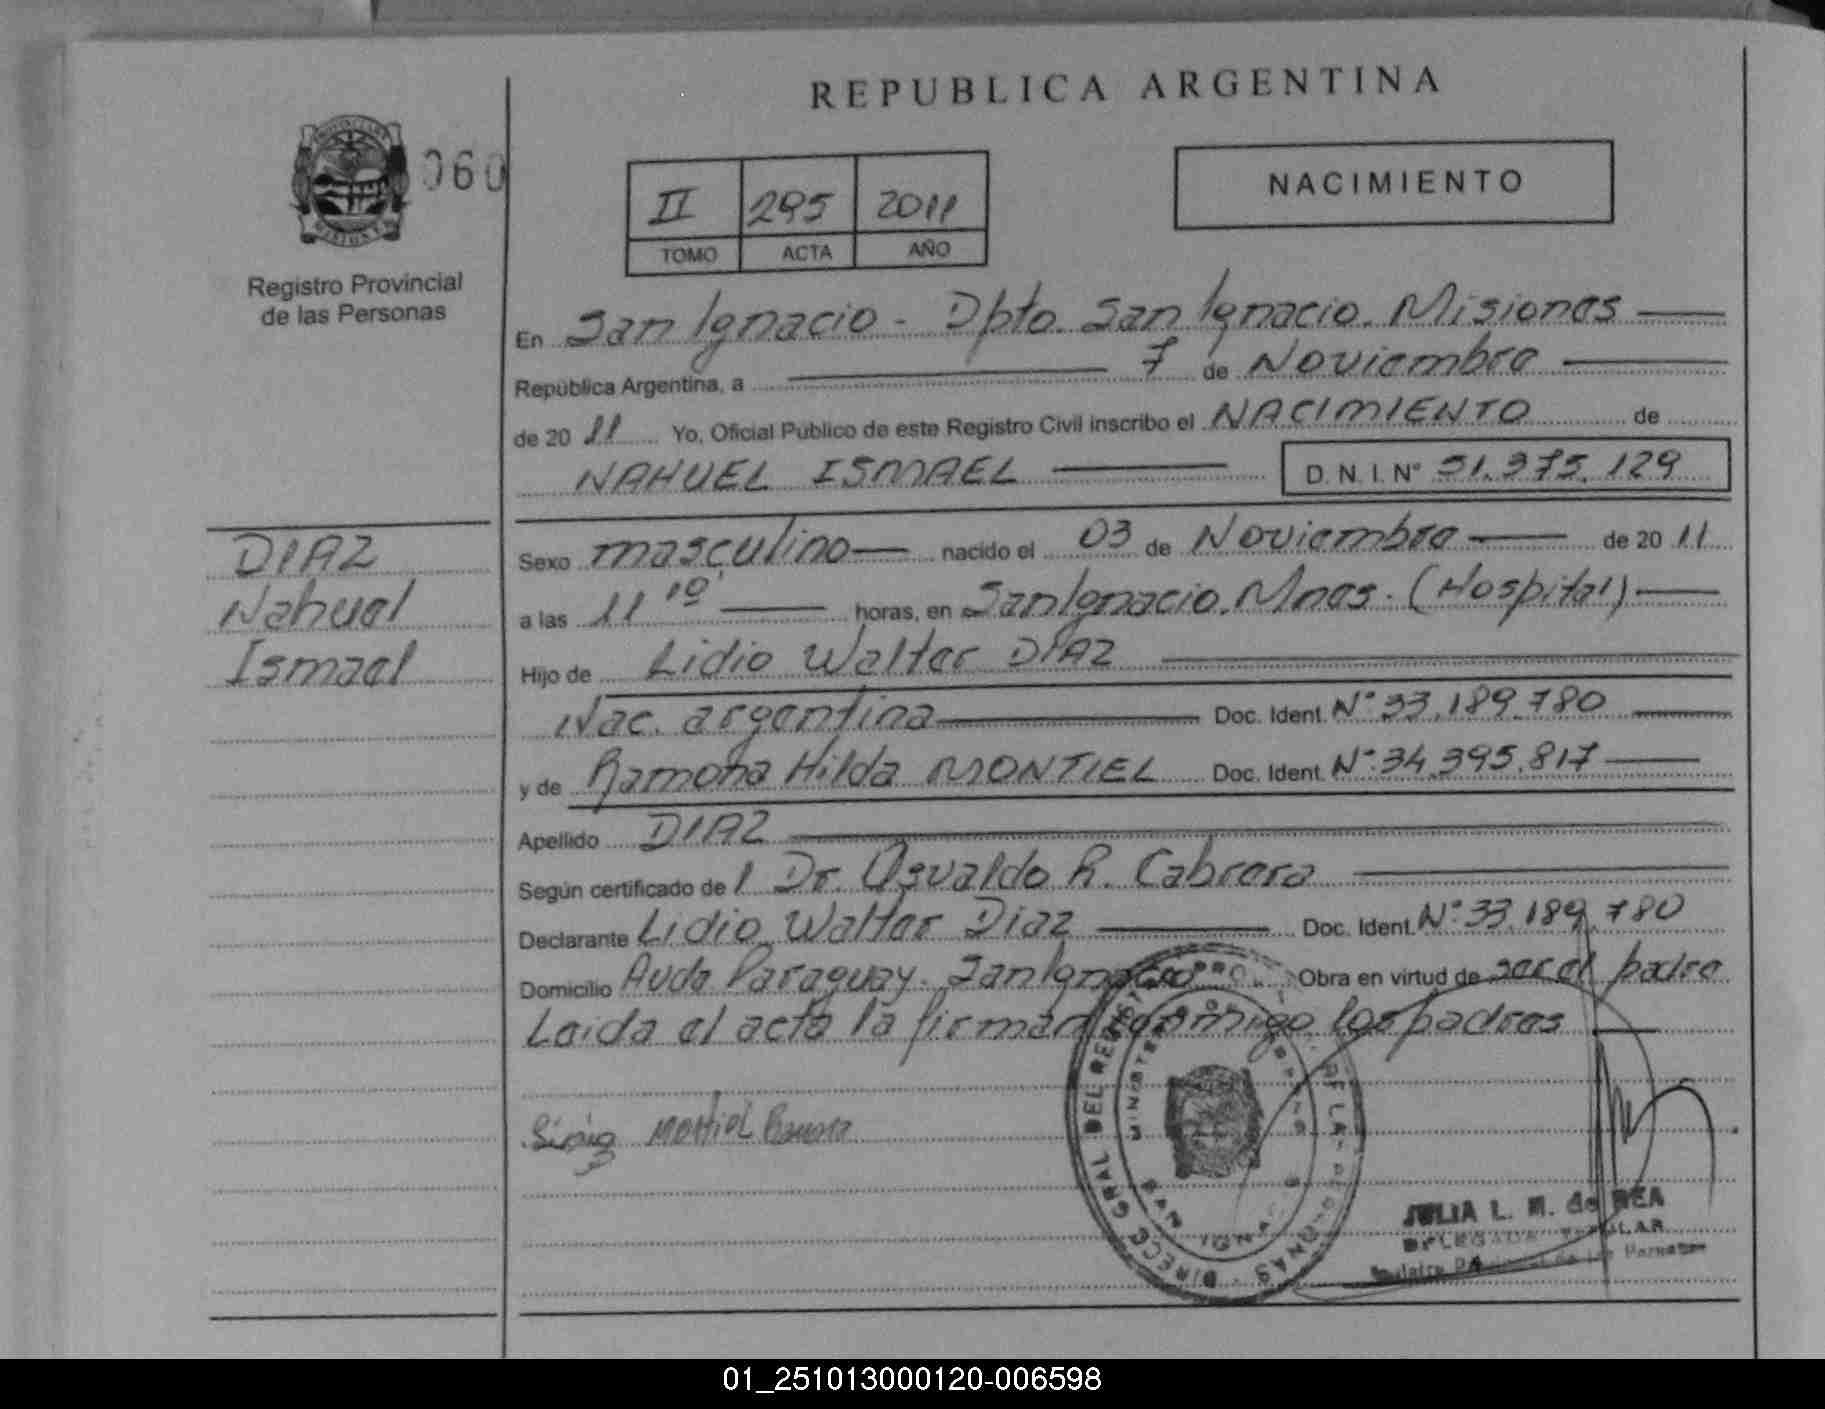 REPUBLICA ARGENTINA
060
II 295 2011
TOMO ACTA AÑO
NACIMIENTO
Registro Provincial
de las Personas
En San Ignacio - Dpto. San Ignacio. Misiones
República Argentina, a 7 de Noviembre
de 20 11 Yo, Oficial Público de este Registro Civil inscribo el NACIMIENTO de
NAHUEL ISMAEL D.N.I.N° 51.375.129
DIAZ
Nahuel
Ismael
Sexo masculino nacido el 03 de Noviembre de 20 11
a las 11 10 horas, en San Ignacio. Mnes. (Hospital)
Hijo de Lidio Walter DIAZ
Nac. argentina Doc. Ident. N° 33.189.780
y de Ramona Hilda MONTIEL Doc. Ident. N° 34.395.817
Apellido DIAZ
Según certificado de l Dr. Osvaldo R. Cabrera
Declarante Lidio Walter Diaz Doc. Ident. N° 33.189.780
Domicilio Avda Paraguay. San Ignacio Obra en virtud de ser el padre
Leida el acta la firman conmigo los padres
Montiel Ramona
DIRECC GRAL DEL
JULIA L. M. de REA
DELEGADA TITULAR
01_251013000120-006598